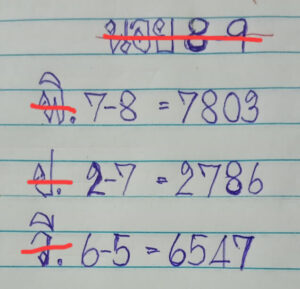 หวย 89
พิ. 7-8 = 7803
ช. 2-7 = 2786
วิ. 6-5 = 6547